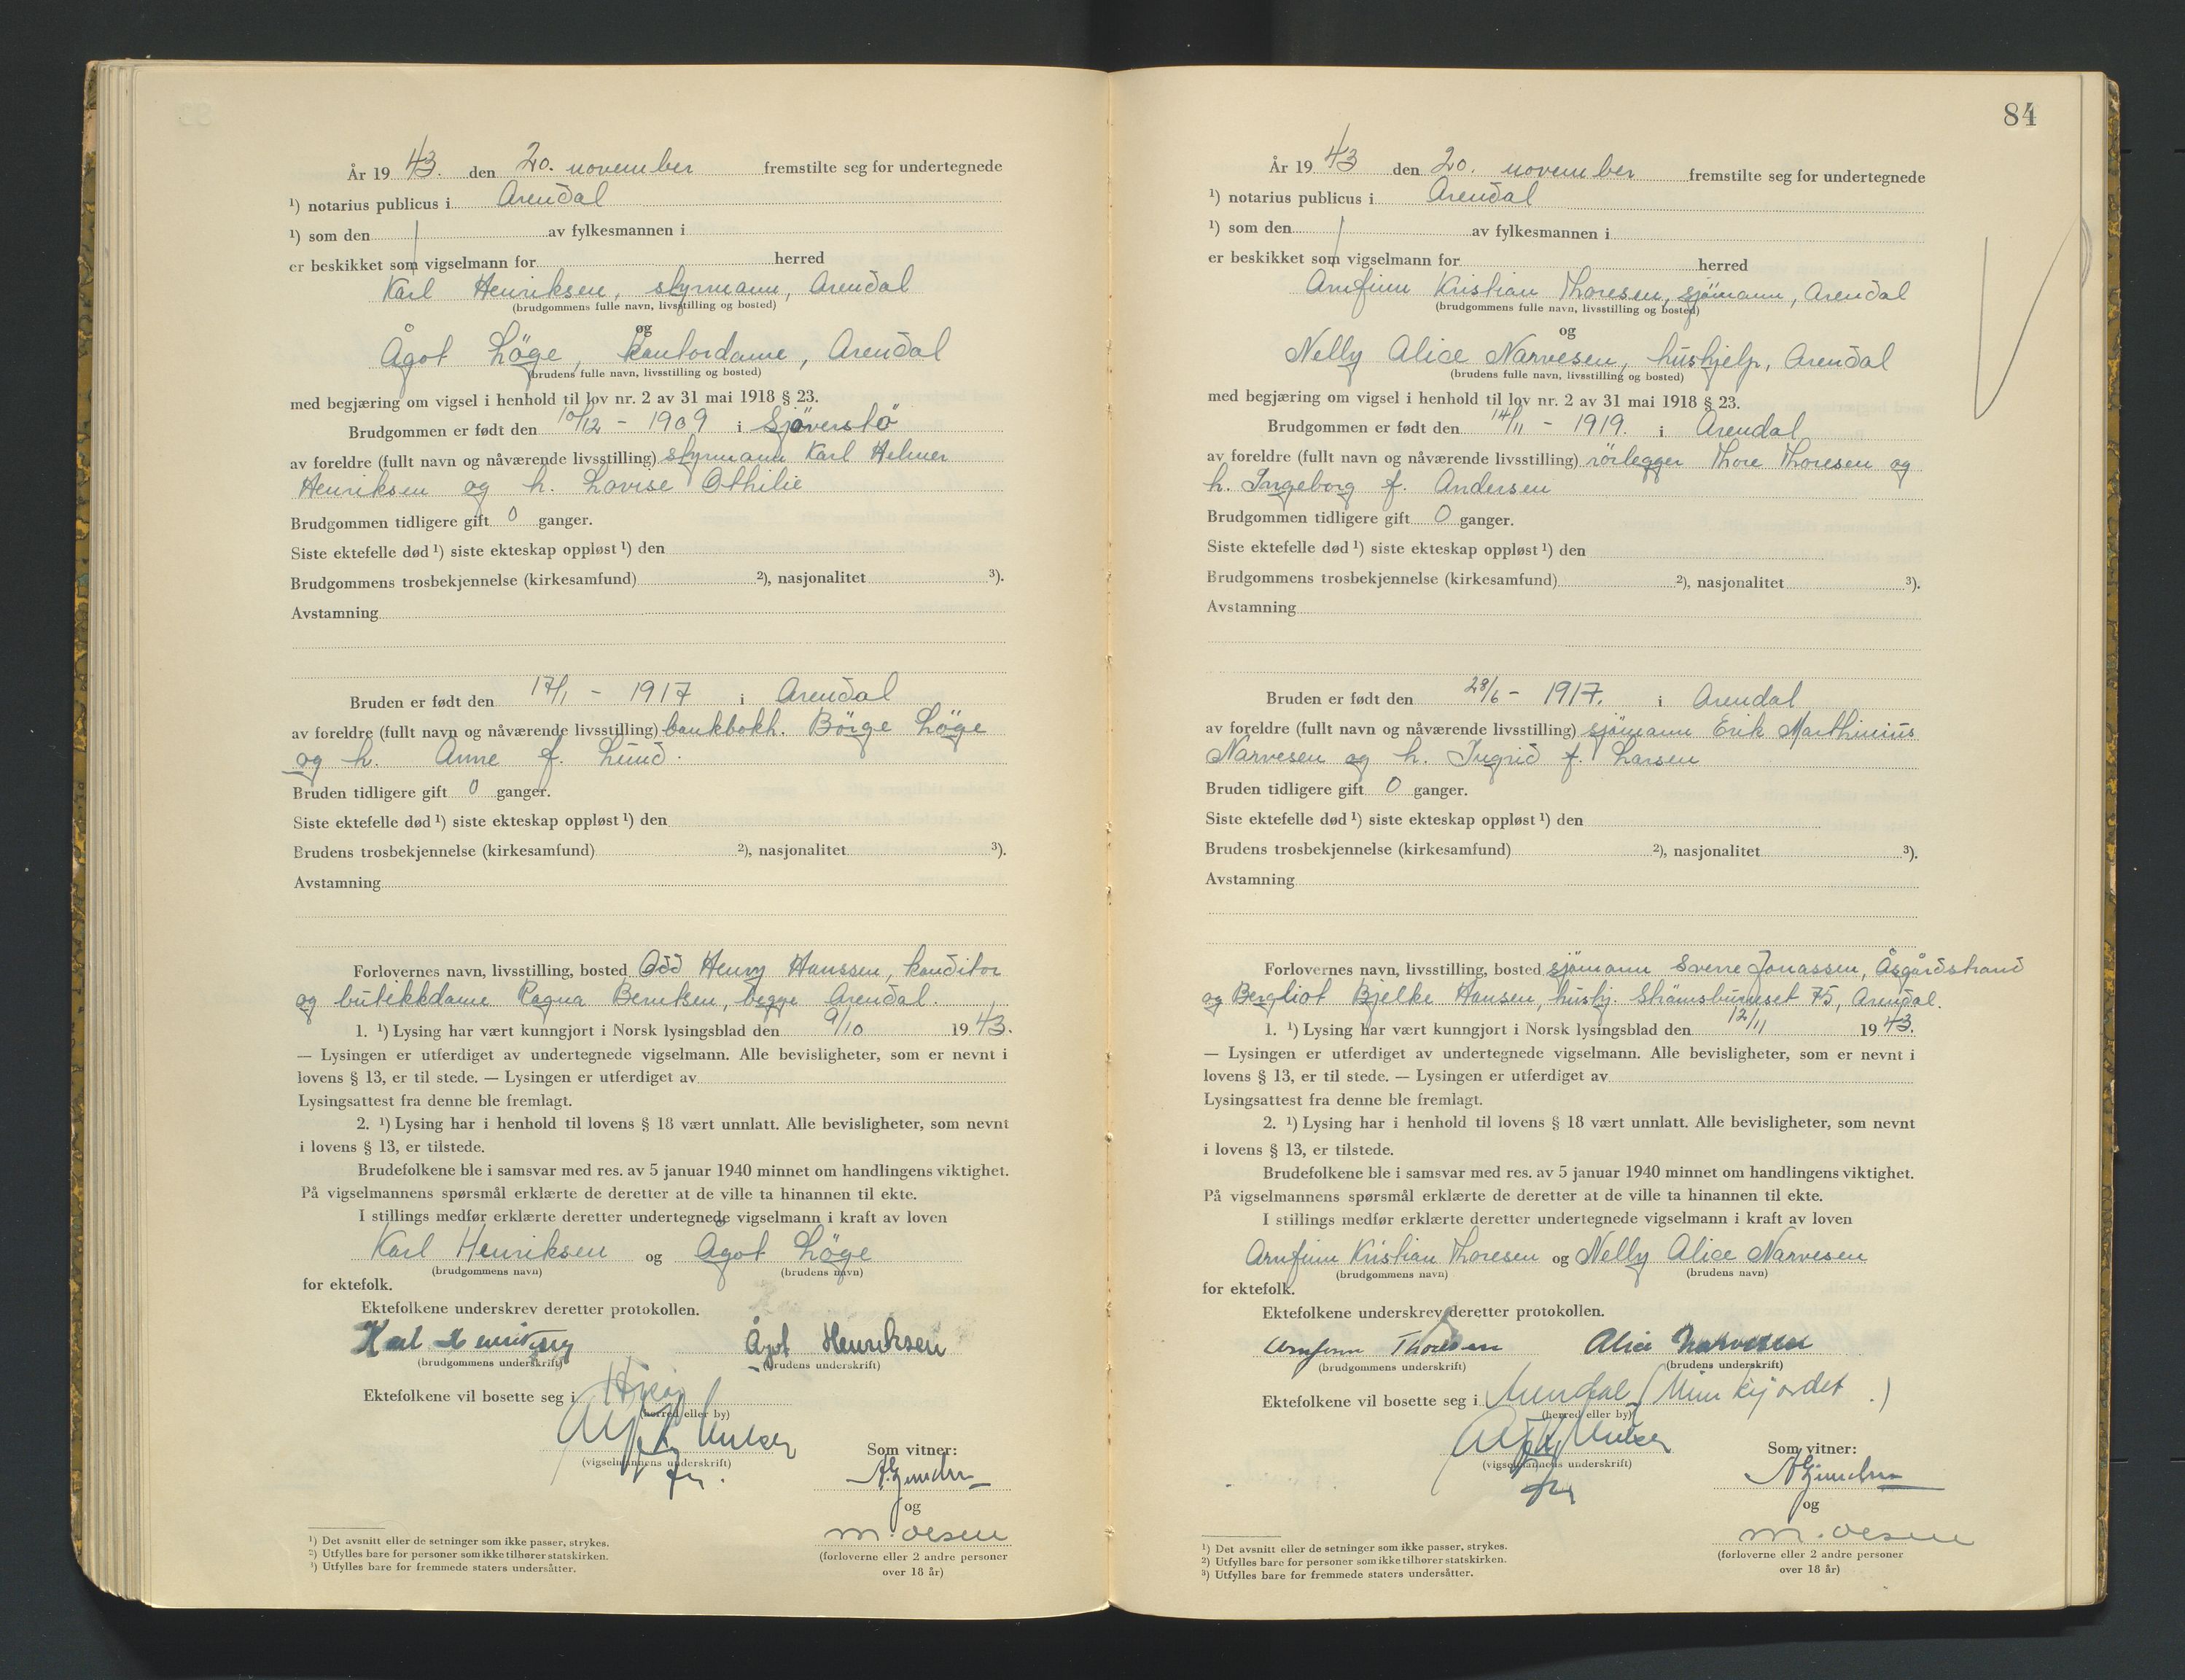 År 19 43. den 20. november fremstilte seg for undertegnede
¹) notarius publicus i Arendal
¹) som den av fylkesmannen i
er beskikket som vigselmann for herred
Karl Henriksen, styrmann, Arendal
(brudgommens fulle navn, livsstilling og bosted)
og
Ågot Löge, kontordame, Arendal
(brudens fulle navn, livsstilling og bosted)
med begjæring om vigsel i henhold til lov nr. 2 av 31 mai 1918 § 23.
Brudgommen er født den 10/12 - 1909 i Sjöverstö
av foreldre (fullt navn og nåværende livsstilling) styrmann Karl Helmer
Henriksen og h. Lovise Othilie
Brudgommen tidligere gift 0 ganger.
Siste ektefelle død ¹) siste ekteskap oppløst ¹) den
Brudgommens trosbekjennelse (kirkesamfund) ²), nasjonalitet ³).
Avstamning
Bruden er født den 17/1 - 1917 i Arendal
av foreldre (fullt navn og nåværende livsstilling) bankbokh. Börge Löge
og h. Anne f. Lund.
Bruden tidligere gift 0 ganger.
Siste ektefelle død ¹) siste ekteskap oppløst ¹) den
Brudens trosbekjennelse (kirkesamfund) ²), nasjonalitet ³).
Avstamning
Forlovernes navn, livsstilling, bosted Odd Henry Hanssen, konditor
og butikkdame Ragna Berntsen, begge Arendal.
1. ¹) Lysing har vært kunngjort i Norsk lysingsblad den 9/10 19 43.
— Lysingen er utferdiget av undertegnede vigselmann. Alle bevisligheter, som er nevnt i
lovens § 13, er til stede. — Lysingen er utferdiget av
Lysingsattest fra denne ble fremlagt.
2. ¹) Lysing har i henhold til lovens § 18 vært unnlatt. Alle bevisligheter, som nevnt
i lovens § 13, er tilstede.
Brudefolkene ble i samsvar med res. av 5 januar 1940 minnet om handlingens viktighet.
På vigselmannens spørsmål erklærte de deretter at de ville ta hinannen til ekte.
I stillings medfør erklærte deretter undertegnede vigselmann i kraft av loven
Karl Henriksen og Ågot Löge
(brudgommens navn) (brudens navn)
for ektefolk.
Ektefolkene underskrev deretter protokollen.
Karl Henriksen Ågot Henriksen
(brudgommens underskrift) (brudens underskrift)
Ektefolkene vil bosette seg i
(herred eller by)
Som vitner:
(vigselmannens underskrift)
og
M. Olsen
(forloverne eller 2 andre personer
over 18 år)
¹) Det avsnitt eller de setninger som ikke passer, strykes.
²) Utfylles bare for personer som ikke tilhører statskirken.
³) Utfylles bare for fremmede staters undersåtter.
84
År 19 43 den 20. november fremstilte seg for undertegnede
¹) notarius publicus i Arendal
¹) som den av fylkesmannen i
er beskikket som vigselmann for herred
Arnfinn Kristian Thoresen, sjömann, Arendal
(brudgommens fulle navn, livsstilling og bosted)
og
Nelly Alice Narvesen, hushjelp, Arendal
(brudens fulle navn, livsstilling og bosted)
med begjæring om vigsel i henhold til lov nr. 2 av 31 mai 1918 § 23.
Brudgommen er født den 14/11 - 1919. i Arendal
av foreldre (fullt navn og nåværende livsstilling) rörlegger Thore Thoresen og
h. Ingeborg f. Andersen
Brudgommen tidligere gift 0 ganger.
Siste ektefelle død ¹) siste ekteskap oppløst ¹) den
Brudgommens trosbekjennelse (kirkesamfund) ²), nasjonalitet ³).
Avstamning
Bruden er født den 28/6 - 1917. i Arendal
av foreldre (fullt navn og nåværende livsstilling) sjömann Erik Marthinius
Narvesen og h. Ingrid f. Larsen
Bruden tidligere gift 0 ganger.
Siste ektefelle død ¹) siste ekteskap oppløst ¹) den
Brudens trosbekjennelse (kirkesamfund) ²), nasjonalitet ³).
Avstamning
Forlovernes navn, livsstilling, bosted sjömann Sverre Jonassen, Åsgårdstrand
og Bergliot Bjelke Hansen, hushj. Strömsbuneset 75, Arendal.
1. ¹) Lysing har vært kunngjort i Norsk lysingsblad den 12/11 19 43.
— Lysingen er utferdiget av undertegnede vigselmann. Alle bevisligheter, som er nevnt i
lovens § 13, er til stede. — Lysingen er utferdiget av
Lysingsattest fra denne ble fremlagt.
2. ¹) Lysing har i henhold til lovens § 18 vært unnlatt. Alle bevisligheter, som nevnt
i lovens § 13, er tilstede.
Brudefolkene ble i samsvar med res. av 5 januar 1940 minnet om handlingens viktighet.
På vigselmannens spørsmål erklærte de deretter at de ville ta hinannen til ekte.
I stillings medfør erklærte deretter undertegnede vigselmann i kraft av loven
Arnfinn Kristian Thoresen og Nelly Alice Narvesen
(brudgommens navn) (brudens navn)
for ektefolk.
Ektefolkene underskrev deretter protokollen.
Arnfinn Thoresen Alice Narvesen
(brudgommens underskrift) (brudens underskrift)
Ektefolkene vil bosette seg i Arendal
(herred eller by)
Som vitner:
(vigselmannens underskrift)
og
M. Olsen
(forloverne eller 2 andre personer
over 18 år)
¹) Det avsnitt eller de setninger som ikke passer, strykes.
²) Utfylles bare for personer som ikke tilhører statskirken.
³) Utfylles bare for fremmede staters undersåtter.